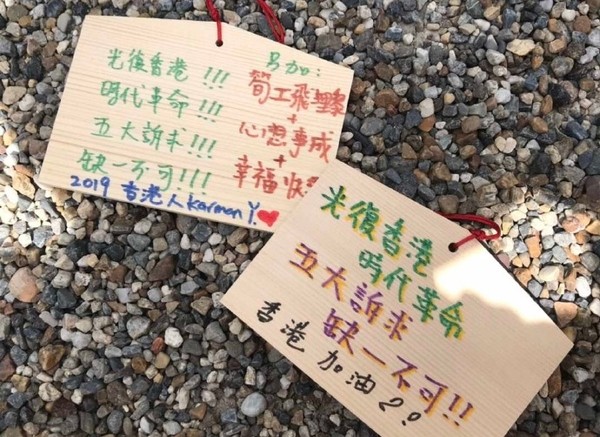 光復香港 !!!
時代革命 !!!
五大訴求 !!!
缺一不可 !!!
2019 香港人 Karmen Y.
另加:
筍工飛
+
心想事成
+
幸福快
光復香港
時代革命
五大訴求
缺一不可!!
香港加油